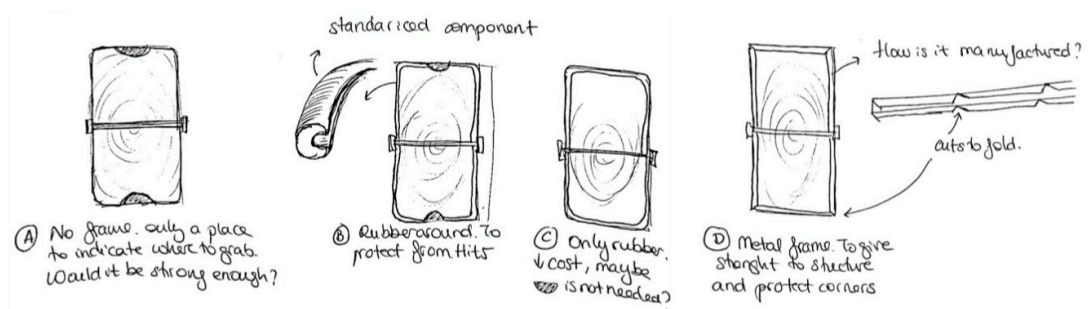 standariced component
How is it manufactured?
cuts to fold.
Ⓐ No frame. only a place
to indicate where to grab.
Would it be strong enough?
Ⓑ Rubber around. To
protect from Hits
Ⓒ Only rubber.
↓ cost, maybe
is not needed?
Ⓓ Metal frame. To give
stenght to structure
and protect corners